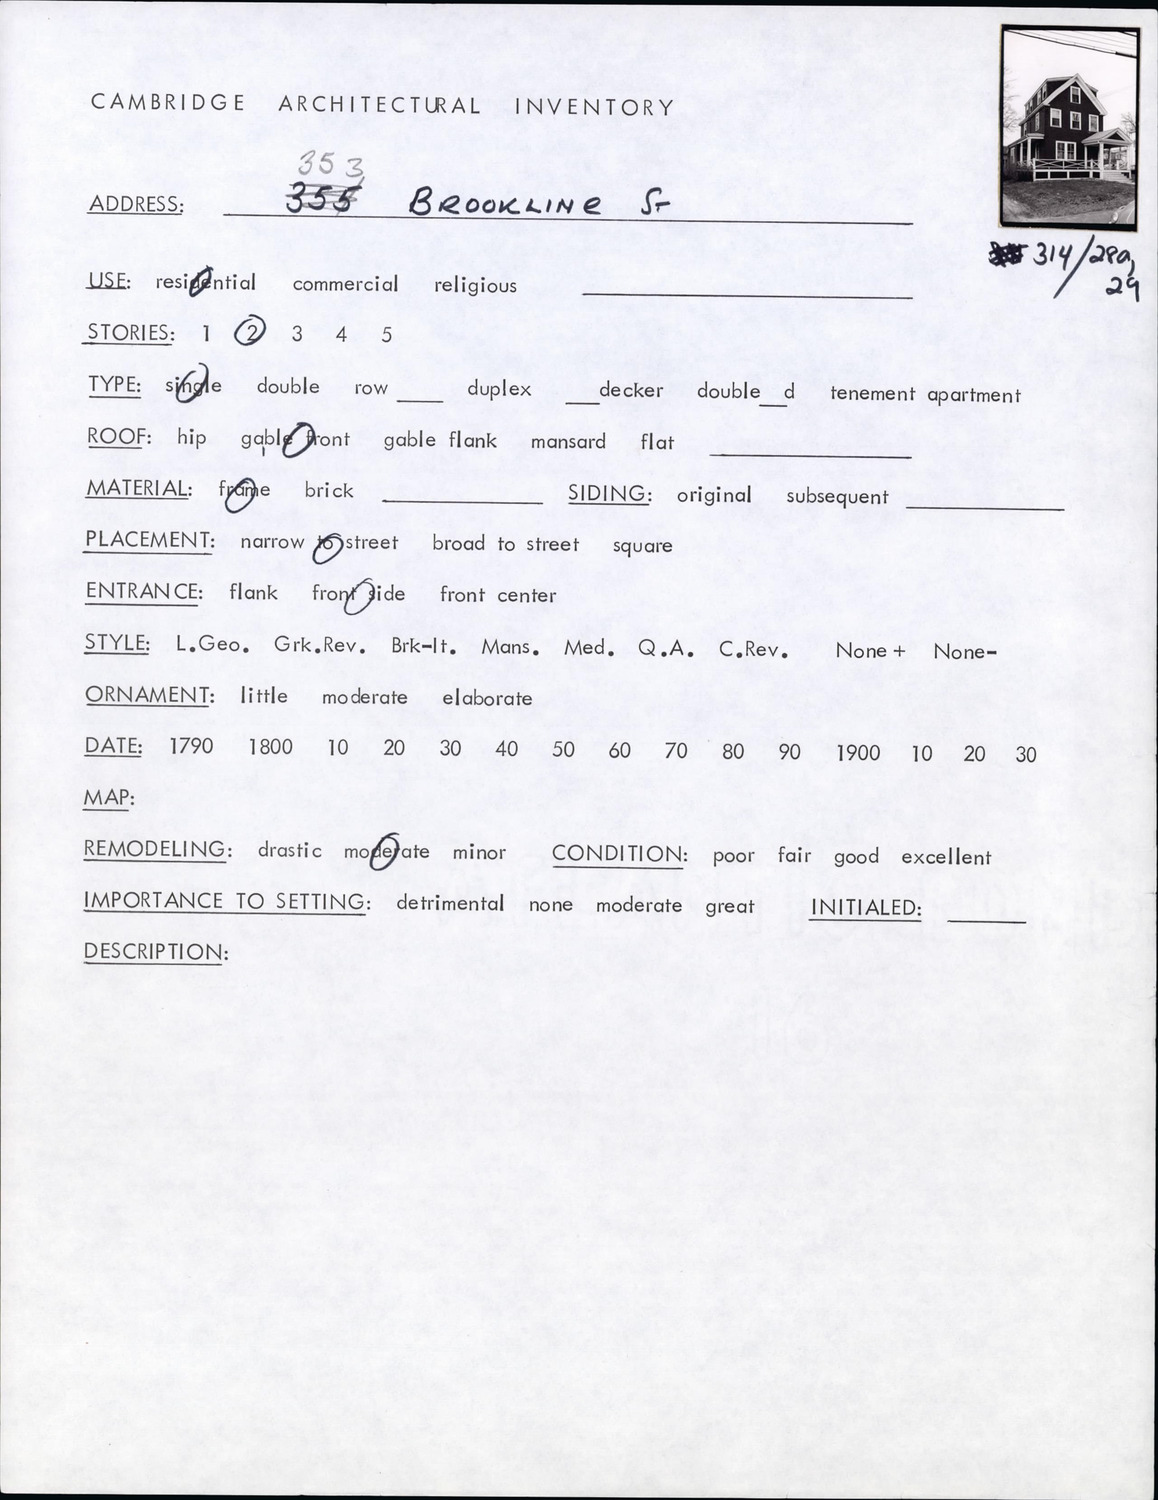 CAMBRIDGE ARCHITECTURAL INVENTORY
353
ADDRESS: 355 BROOKLINE ST
314/28a,
29
USE: residential commercial religious
STORIES: 1 2 3 4 5
TYPE: single double row ____ duplex ___decker double__d tenement apartment
ROOF: hip gable front gable flank mansard flat
MATERIAL: frame brick SIDING: original subsequent
PLACEMENT: narrow to street broad to street square
ENTRANCE: flank front side front center
STYLE: L.Geo. Grk.Rev. Brk-It. Mans. Med. Q.A. C.Rev. None + None-
ORNAMENT: little moderate elaborate
DATE: 1790 1800 10 20 30 40 50 60 70 80 90 1900 10 20 30
MAP:
REMODELING: drastic moderate minor CONDITION: poor fair good excellent
IMPORTANCE TO SETTING: detrimental none moderate great INITIALED:
DESCRIPTION: